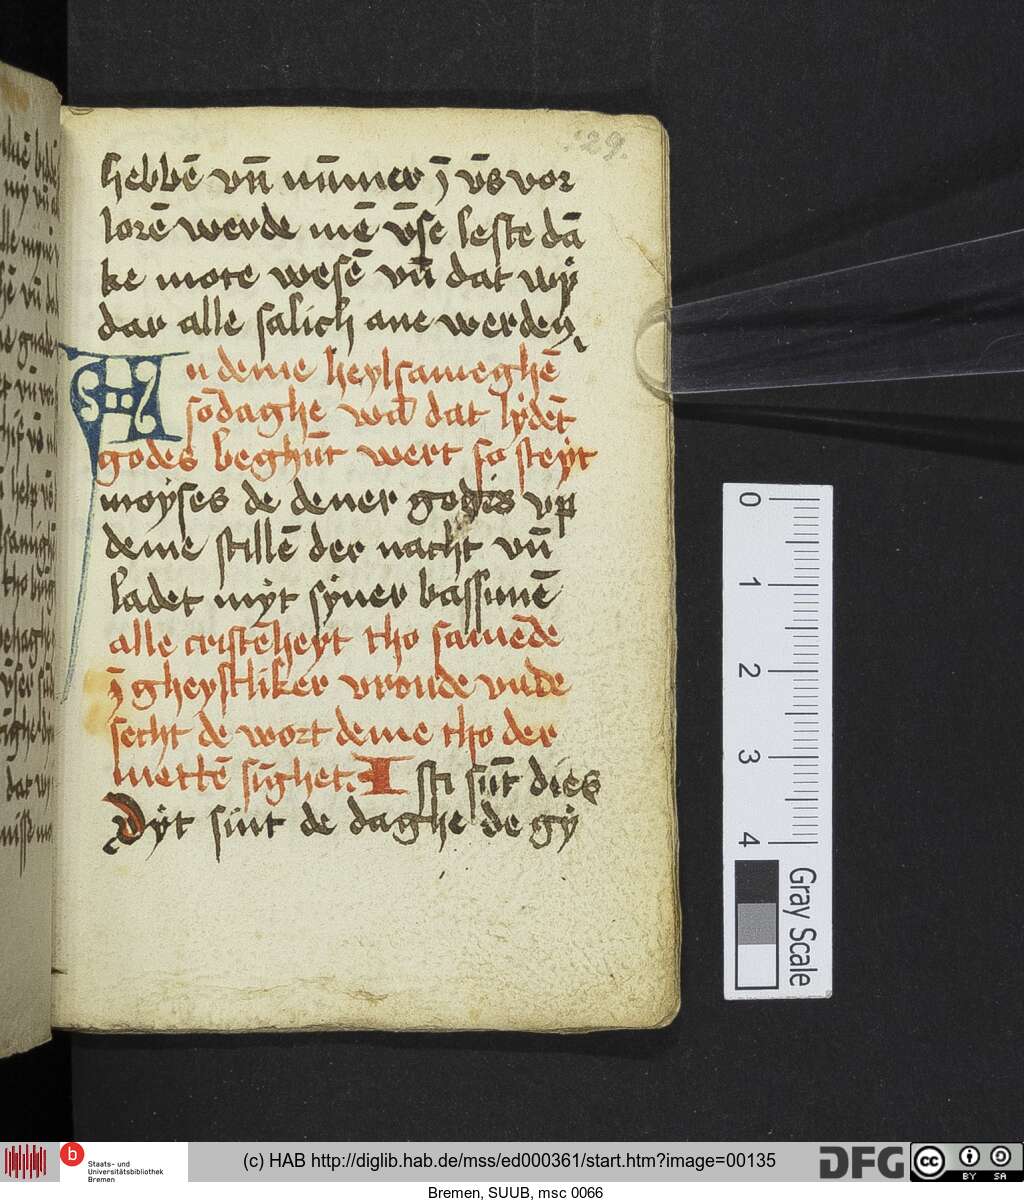 129.
hebbē vn̄ nūmer ī v̄s vor
lorē werde mē v̄se leste dā
ke mote wesē vn̄ dat wÿ
dar alle salich ane werden
An deme heylsameghē
sōdaghe wā dat lÿdēt
godes beghūt wert so steyt
moÿses de dener godes vp
deme stillē der nacht vn̄
ladet mÿt sÿner bassunē
alle cristēheyt tho samēde
ī gheystliker vroude vnde
secht de wort deme tho der
mettē sīghet. Isti sūt dies
Dÿt sint de daghe de gÿ
0 1 2 3 4
Gray Scale
b
Staats- und
Universitätsbibliothek
Bremen
(c) HAB http://diglib.hab.de/mss/ed000361/start.htm?image=00135
DFG
cc BY SA
Bremen, SUUB, msc 0066